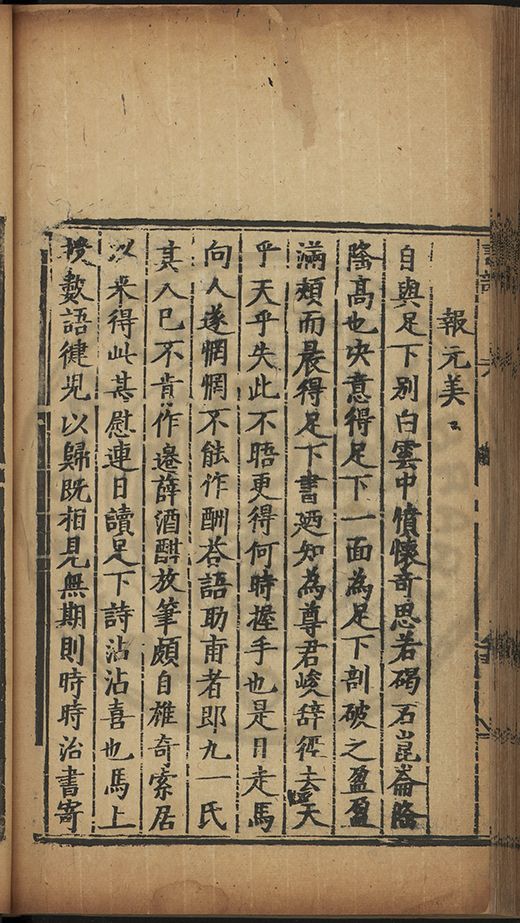 報元美
自與足下別白雲中憤懷奇思若碣石崑崙隆
隆高也決意得足下一面為足下剖破之盈盈
滿頰而晨得足下書廼知為尊君峻辭徑去天
乎天乎失此不晤更得何時握手也是日走馬
向人遂惘惘不能作酬荅語助甫者即九一氏
其人巳不肯作邊薛酒酣放筆頗自雄奇索居
以來得此甚慰連日讀足下詩沾沾喜也馬上
數語律兒以歸既相見無期則時時治書寄